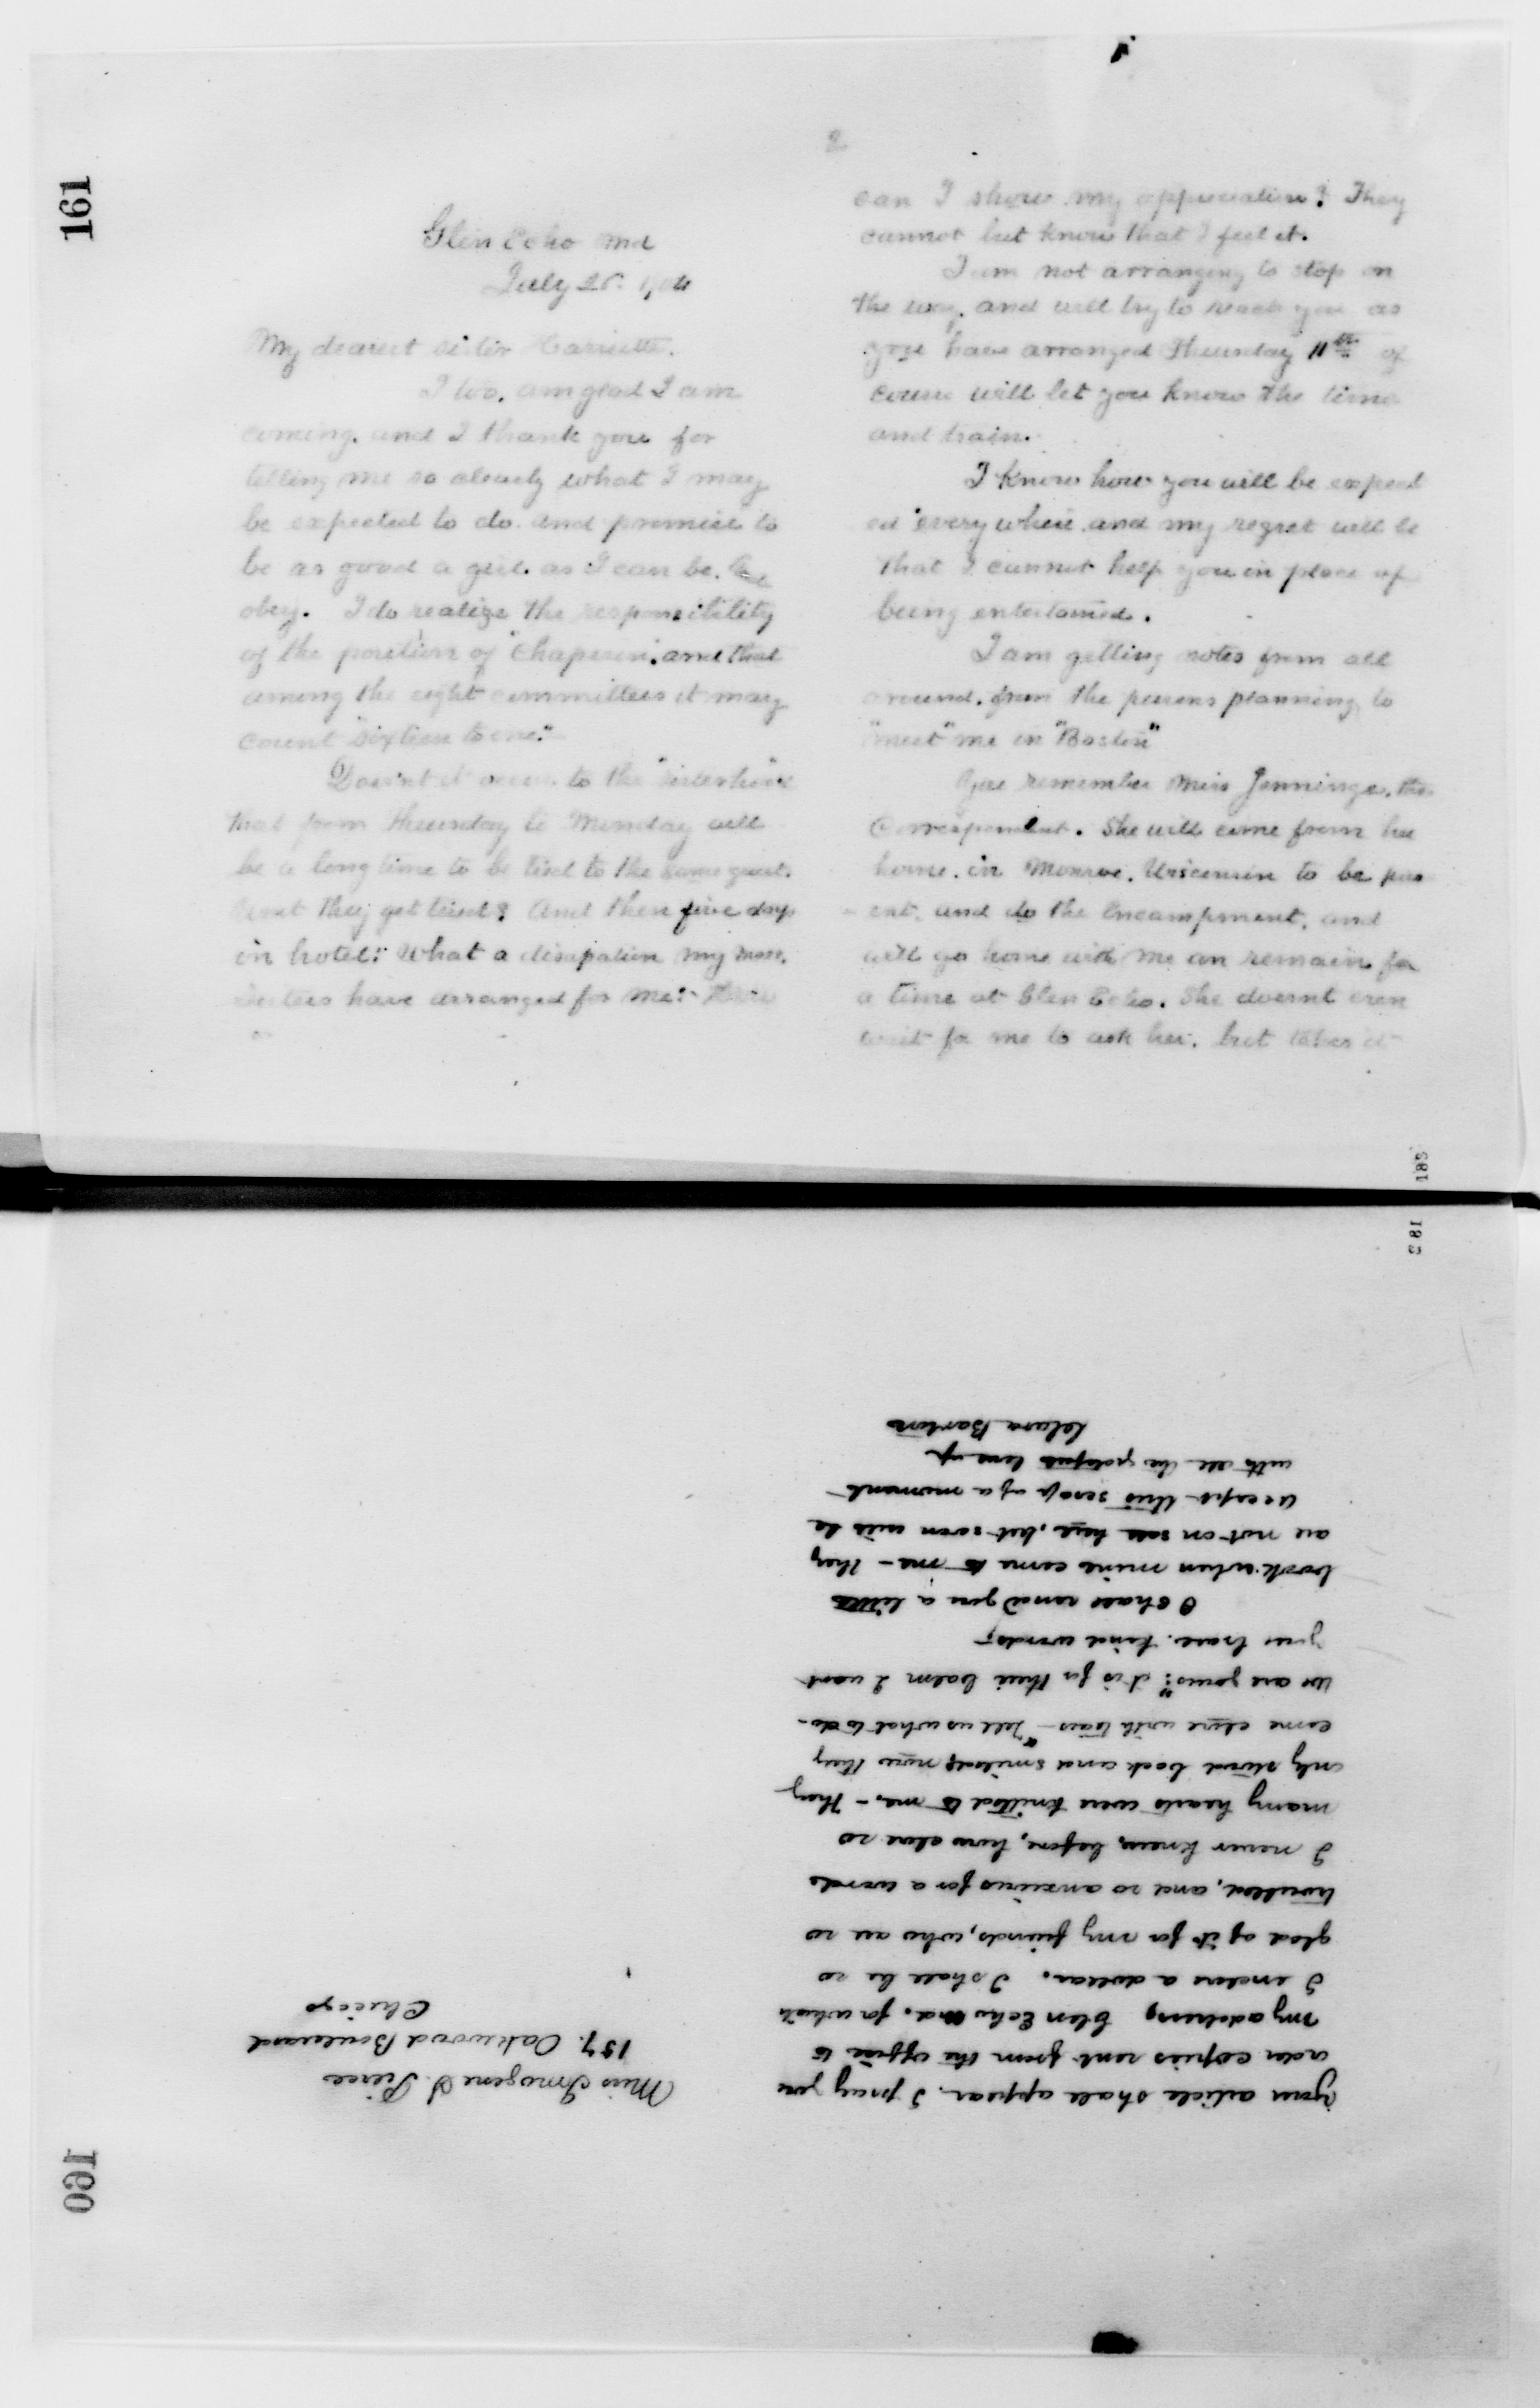 161
Glen Echo Md
July 25. 1904
My dearest sister Harriette.
I too, am glad I am
coming. and I thank you for
telling me so clearly what I may
be expected to do. and promise to
be as good a girl. as I can be. &
obey. I do realize the responsibility
of the position of "Chaperon". and that
among the eight committees it may
count "sixteen to one."
Doesn't it occur to the "sisterhood"
that from Thursday to Monday will
be a long time to be tied to the same guest.
wont they get tired? And then five days
in hotel: What a dissipation my Mass.
sisters have arranged for me: How
2
can I show my appreciation? They
cannot but know that I feel it.
I am not arranging to stop on
the way. and will try to reach you as
you have arranged Thursday 11th of
course will let you know the time
and train.
I know how you will be expect
ed everywhere. and my regret will be
that I cannot help you in place of
being entertained.
I am getting notes from all
around. from the persons planning to
"meet" me in "Boston"
You remember Miss Jennings. the
Correspondent. She will come from her
home. in Monroe. Wisconsin to be pres
ent. and do the Encampment. and
will go home with me an remain for
a time at Glen Echo. She doesnt even
wait for me to ask her. but takes it
183
183
your article shall appear. I pray you
order copies sent from the office to
my address, Glen Echo Md. for which
I enclose a dollar. I shall be so
glad of it for my friends, who are so
troubled, and so anxious for a word.
I never knew, before, how close so
many hearts were knitted to me. - they
only stood back and smiled, now they
come close with tears - "Tell us what to do -
we are yours:" it is for their balm I want
your brave. kind words,
I shall send you a little
book. when mine come to me - they
are not on sale here, but soon will be
accept this scrap of a moment
with all the grateful love of
Clara Barton
Miss Imogene S. Pierce
157. Oakwood Boulevard
Chicago
160